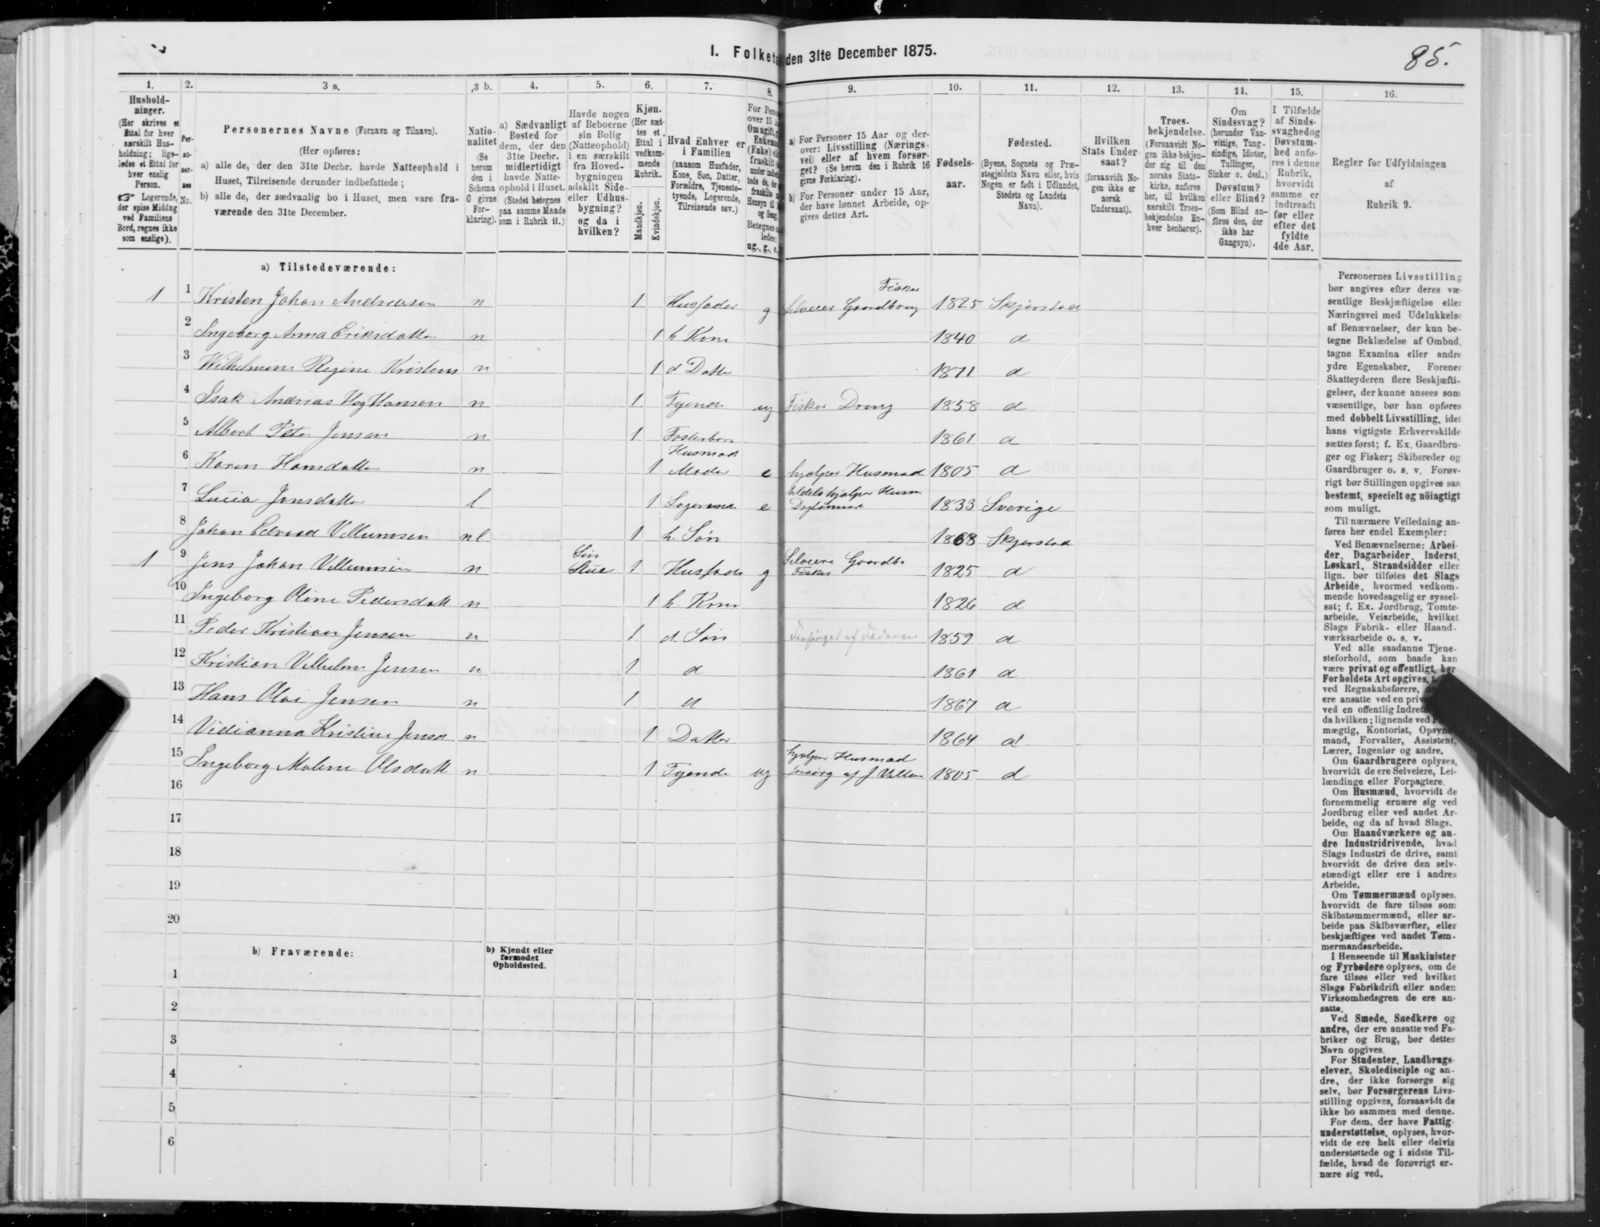 85.
I. Folketa den 31te December 1875.
1. 2. 3 a. 3 b. 4. 5. 6. 7. 8. 9. 10. 11. 12. 13. 14. 15. 16.
Hushold-
ninger.
(Her skrives et
Ettal for hver
særskilt Hus-
holdning; lige-
ledes et Ettal for
hver enslig
Person.
Logerende,
der spise Middag
ved Familiens
Bord, regnes ikke
som enslige).
Per-
so-
ner-
nes
No.
Personernes Navne (Fornavn og Tilnavn).
(Her opføres:
a) alle de, der den 31te Decbr. havde Natteophold i
Huset, Tilreisende derunder indbefattede;
b) alle de, der sædvanlig bo i Huset, men vare fra-
værende den 31te December.
Natio-
nalitet
(Se
herom
den i
Schema
O givne
For-
klaring).
a) Sædvanligt
Bosted for
dem, der den
31te Decbr.
midlertidigt
havde Natte-
ophold i Huset.
(Stedet betegnes
paa samme Maade
som i Rubrik 11.)
Havde nogen
af Beboerne
sin Bolig
(Natteophold)
i en særskilt
fra Hoved-
bygningen
adskilt Side-
eller Udhus-
bygning?
og da i
hvilken?
Kjøn.
(Her sæt-
tes et
Ettal i
vedkom-
mende
Rubrik.
Mandkjøn.
Kvindekjøn.
Hvad Enhver er
i Familien
(saasom Husfader,
Kone, Søn, Datter,
Forældre, Tjeneste-
tyende, Logerende,
Tilreisende osv.)
a) For Personer 15 Aar og der-
over: Livsstilling (Nærings-
vei) eller af hvem forsør-
get? (Se herom den i Rubrik 16
givne Forklaring).
b) For Personer under 15 Aar,
der have lønnet Arbeide, op-
gives dettes Art.
Fødsels-
aar.
Fødested.
(Byens, Sognets og Præ-
stegjeldets Navn eller, hvis
Nogen er født i Udlandet,
Stedets og Landets
Navn).
Hvilken
Stats Under
saat?
(forsaavidt No-
gen ikke er
norsk
Undersaat).
Troes-
bekjendelse.
(Forsaavidt No-
gen ikke bekjen-
der sig til den
norske Stats-
kirke, anføres
her, til hvilken
særskilt Troes-
bekjendelse En-
hver henhører).
Om
Sindssvag?
(herunder Van-
vittige, Tung-
sindige, Idioter,
Tullinger,
Sinker o. desl.)
Døvstum?
eller Blind?
(Som Blind an-
føres den, der
ikke har
Gangsyn).
I Tilfælde
af Sinds-
svaghed og
Døvstum-
hed anfø-
res i denne
Rubrik,
hvorvidt
samme er
indtraadt
før eller
efter det
fyldte
4de Aar.
Regler for Udfyldningen
af
Rubrik 9.
a) Tilstedeværende:
1 1 Kristen Johan Andreasen n 1 Husfader g Selveier Gaardbrug Fisker 1825 Skjerstad
2 Ingeborg Anna Eriksdatter n 1 h. Kone 1840 d
3 Wilhelmine Regine Kristens n 1 d Datter 1871 d
4 Isak Andreas Hansen n 1 Tyende ug Fisker Dreng 1858 d
5 Albert Peter Jensen n 1 Fosterbarn 1861 d
6 Karen Hansdatter n 1 Husmad Moder e hjælper Husmad 1805 d
7 Lucia Jonsdatter l 1 Logerende e 1833 Sverige
8 Johan Edvard Villumsen nl h. Søn 1868 Skjerstad
1 9 Jens Johan Villumsen n Sin Stue 1 Husfader g Selveier Gaardbr Fisker 1825 d
10 Ingeborg Oline Pedersdatt n 1 h. Kone 1826 d
11 Peder Kristian Jensen n 1 d. Søn 1859 d
12 Kristian Vilhelm Jensen n 1 d 1861 d
13 Hans Olai Jensen n 1 d 1867 d
14 Vidianna Kristine Jensd n 1 Datter 1864 d
15 Ingeborg Malene Olsdatt n 1 Tyende ug hjælper Husmad forsørg af J Villum 1805 d
16
17
18
19
20
b) Fraværende:
b) Kjendt eller
formodet
Opholdssted.
1
2
3
4
5
6
Personernes Livsstilling
bør angives efter deres væ-
sentlige Beskjæftigelse eller
Næringsvei med Udelukkelse
af Benævnelser, der kun be-
tegne Beklædelse af Ombud,
tagne Examina eller andre
ydre Egenskaber. Forener
Skatteyderen flere Beskjæfti-
gelser, der kunne ansees som
væsentlige, bør han opføres
med dobbelt Livsstilling, idet
hans vigtigste Erhvervskilde
sættes først; f. Ex. Gaardbru-
ger og Fisker; Skibsreder og
Gaardbruger o. s. v. Forøv-
rigt bør Stillingen opgives saa
bestemt, specielt og nöiagtigt
som muligt.
Til nærmere Veiledning an-
føres her endel Exempler:
Ved Benævnelserne: Arbei-
der, Dagarbeider, Inderst,
Løskarl, Strandsidder eller
lign. bør tilføies det Slags
Arbeide, hvormed vedkom-
mende hovedsagelig er syssel-
sat; f. Ex. Jordbrug, Tomte-
arbeide, Veiarbeide, hvilket
Slags Fabrik- eller Haand-
værksarbeide o. s. v.
Ved alle saadanne Tjene-
steforhold, som baade kan
være privat og offentligt, bør
Forholdets Art opgives,
mægtig, Kontorist, Opsyns-
mand, Forvalter, Assistent,
Lærer, Ingeniør og andre.
Om Gaardbrugere oplyses,
hvorvidt de ere Selveiere, Lei-
lændinge eller Forpagtere.
Om Husmænd, hvorvidt de
fornemmelig ernære sig ved
Jordbrug eller ved andet Ar-
beide, og da af hvad Slags.
Om Haandværkere og an-
dre Industridrivende, hvad
Slags Industri de drive, samt
hvorvidt de drive den selv-
stændigt eller ere i andres
Arbeide.
Om Tømmermænd oplyses,
hvorvidt de fare tilsøs som
Skibstømmermænd, eller ar-
beide paa Skibsværfter, eller
beskjæftiges ved andet Tøm-
mermandsarbeide.
I Henseende til Maskinister
og Fyrbødere oplyses, om de
fare tilsøs eller ved hvilket
Slags Fabrikdrift eller anden
Virksomhedsgren de ere an-
satte.
Ved Smede, Snedkere og
andre, der ere ansatte ved Fa-
briker og Brug, bør dettes
Navn opgives.
For Studenter, Landbrugs-
elever, Skoledisciple og an-
dre, der ikke forsørge sig
selv, bør Forsørgerens Livs-
stilling opgives, forsaavidt de
ikke bo sammen med denne.
For dem, der have Fattig-
understøttelse, oplyses, hvor-
vidt de ere helt eller delvis
understøttede og i sidste Til-
fælde, hvad de forøvrigt er-
nære sig ved.